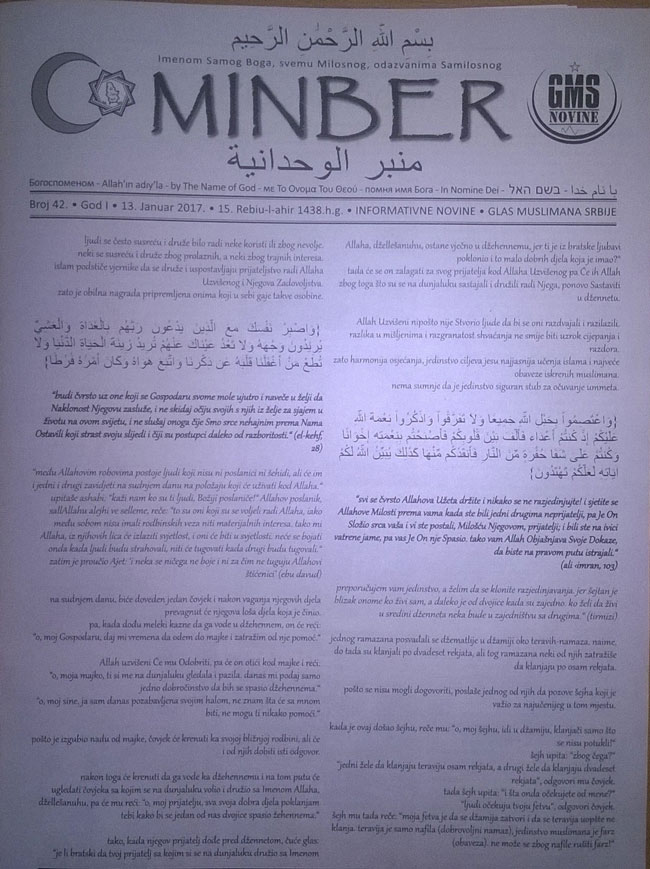 بِسْمِ اللَّهِ الرَّحْمَٰنِ الرَّحِيمِ
Imenom Samog Boga, svemu Milosnog, odazvanima Samilosnog
MINBER
GMS
NOVINE
منبر الوحدانية
Богоспоменом - Allah'ın adıy'la - by The Name of God - με Το Ονομα Του Θεού - помня имя Бога - In Nomine Dei - בשם האל - با نام خدا
Broj 42. • God I • 13. Januar 2017. • 15. Rebiu-l-ahir 1438.h.g. • INFORMATIVNE NOVINE • GLAS MUSLIMANA SRBIJE
ljudi se često susreću i druže bilo radi neke koristi ili zbog nevolje.
neki se susreću i druže zbog prolaznih, a neki zbog trajnih interesa.
islam podstiče vjernike da se druže i uspostavljaju prijateljstvo radi Allaha
Uzvišenog i Njegova Zadovoljstva.
zato je obilna nagrada pripremljena onima koji u sebi gaje takve osobine.
{وَاصْبِرْ نَفْسَكَ مَعَ الَّذِينَ يَدْعُونَ رَبَّهُم بِالْغَدَاةِ وَالْعَشِيِّ
يُرِيدُونَ وَجْهَهُ وَلَا تَعْدُ عَيْنَاكَ عَنْهُمْ تُرِيدُ زِينَةَ الْحَيَاةِ الدُّنْيَا وَلَا
تُطِعْ مَنْ أَغْفَلْنَا قَلْبَهُ عَن ذِكْرِنَا وَاتَّبَعَ هَوَاهُ وَكَانَ أَمْرُهُ فُرُطًا}
"budi čvrsto uz one koji se Gospodaru svome mole ujutro i naveče u želji da
Naklonost Njegovu zasluže, i ne skidaj očiju svojih s njih iz želje za sjajem u
životu na ovom svijetu, i ne slušaj onoga čije Smo srce nehajnim prema Nama
Ostavili koji strast svoju slijedi i čiji su postupci daleko od razboritosti." (el-kehf,
28)
"među Allahovim robovima postoje ljudi koji nisu ni poslanici ni šehidi, ali će im
i jedni i drugi zavidjeti na sudnjem danu na položaju koji će uživati kod Allaha."
upitaše ashabi: "kaži nam ko su ti ljudi, Božiji poslaniče!" Allahov poslanik,
sallAllahu alejhi ve selleme, reče: "to su oni koji su se voljeli radi Allaha, iako
među sobom nisu imali rodbinskih veza niti materijalnih interesa. tako mi
Allaha, iz njihovih lica će izlaziti svjetlost, i oni će biti u svjetlosti. neće se bojati
onda kada ljudi budu strahovali, niti će tugovati kada drugi budu tugovali."
zatim je proučio Ajet: "i neka se ničega ne boje i ni za čim ne tuguju Allahovi
štićenici" (ebu davud)
na sudnjem danu, biće doveden jedan čovjek i nakon vaganja njegovih djela
prevagnut će njegova loša djela koja je činio.
pa, kada dođu meleki kazne da ga vode u džehennem, on će reći:
"o, moj Gospodaru, daj mi vremena da odem do majke i zatražim od nje pomoć."
Allah uzvišeni Će mu Odobriti, pa će on otići kod majke i reći:
"o, moja majko, ti si me na dunjaluku gledala i pazila. danas mi podaj samo
jedno dobročinstvo da bih se spasio džehennema."
"o, moj sine, ja sam danas pozabavljena svojim halom, ne znam šta će sa mnom
biti, ne mogu ti nikako pomoći."
pošto je izgubio nadu od majke, čovjek će krenuti ka svojoj bližnjoj rodbini, ali će
i od njih dobiti isti odgovor.
nakon toga će krenuti da ga vode ka džehennemu i na tom putu će
ugledati čovjeka sa kojim se na dunjaluku volio i družio sa Imenom Allaha,
džellešanuhu, pa će mu reći: "o, moj prijatelju, sva svoja dobra djela poklanjam
tebi kako bi se jedan od nas dvojice spasio žehennema."
tako, kada njegov prijatelj dođe pred džehennem, čuće glas:
"je li bratski da tvoj prijatelj sa kojim si se na dunjaluku družio sa Imenom
Allaha, džellešanuhu, ostane vječno u džehennemu, jer ti je iz bratske ljubavi
poklonio i to malo dobrih djela koja je imao?"
tada će se on zalagati za svog prijatelja kod Allaha Uzvišenog pa Će ih Allah
zbog toga što su se na dunjaluku sastajali i družili radi Njega, ponovo Sastaviti
u džennetu.
Allah Uzvišeni nipošto nije Stvorio ljude da bi se oni razdvajali i razilazili.
razlika u mišljenima i razgranatost shvaćanja ne smije biti uzrok cijepanja i
razdora.
zato harmonija osjećanja, jedinstvo ciljeva jesu najjasnija učenja islama i najveće
obaveze iskrenih muslimana.
nema sumnje da je jedinstvo siguran stub za očuvanje ummeta.
{وَاعْتَصِمُوا بِحَبْلِ اللَّهِ جَمِيعًا وَلَا تَفَرَّقُوا وَاذْكُرُوا نِعْمَةَ اللَّهِ
عَلَيْكُمْ إِذْ كُنتُمْ أَعْدَاءً فَأَلَّفَ بَيْنَ قُلُوبِكُمْ فَأَصْبَحْتُم بِنِعْمَتِهِ إِخْوَانًا
وَكُنتُمْ عَلَىٰ شَفَا حُفْرَةٍ مِّنَ النَّارِ فَأَنقَذَكُم مِّنْهَا كَذَٰلِكَ يُبَيِّنُ اللَّهُ لَكُمْ
آيَاتِهِ لَعَلَّكُمْ تَهْتَدُونَ}
"svi se čvrsto Allahova Užeta držite i nikako se ne razjedinjujte! i sjetite se
Allahove Milosti prema vama kada ste bili jedni drugima neprijatelji, pa Je On
Složio srca vaša i vi ste postali, Milošću Njegovom, prijatelji; i bili ste na ivici
vatrene jame, pa vas Je On nje Spasio. tako vam Allah Objašnjava Svoje Dokaze,
da biste na pravom putu istrajali."
(ali -imran, 103)
preporučujem vam jedinstvo, a želim da se klonite razjedinjavanja. jer šejtan je
blizak onome ko živi sam, a daleko je od dvojice kada su zajedno. ko želi da živi
u sredini dženneta neka bude u zajedništvu sa drugima." (tirmizi)
jednog ramazana posvađali se džematlije u džamiji oko teravih-namaza. naime,
do tada su klanjali po dvadeset rekjata, ali tog ramazana neki od njih zatražiše
da klanjaju po osam rekjata.
pošto se nisu mogli dogovoriti, poslaše jednog od njih da pozove šejha koji je
važio za najučenijeg u tom mjestu.
kada je ovaj došao šejhu, reče mu: "o, moj šejhu, idi u džamiju, klanjači samo što
se nisu potukli!"
šejh upita: "zbog čega?"
"jedni žele da klanjaju teraviju osam rekjata, a drugi žele da klanjaju dvadeset
rekjata", odgovori mu čovjek.
tada šejh upita: "i šta onda očekujete od mene?"
"ljudi očekuju tvoju fetvu", odgovori čovjek.
šejh mu tada reče: "moja fetva je da se džamija zatvori i da se teravija uopšte ne
klanja. teravija je samo nafila (dobrovoljni namaz), jedinstvo muslimana je farz
(obaveza). ne može se zbog nafile rušiti farz!"